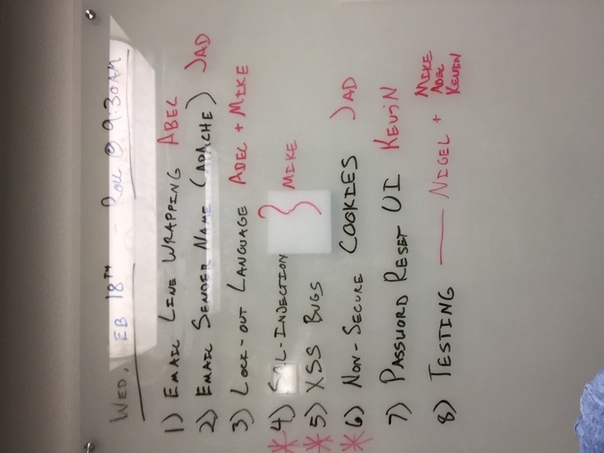 WED, FEB 18TH - ROLL @ 9:30AM
1) EMAIL LINE WRAPPING ABEL
2) EMAIL SENDER NAME (APACHE) JAD
3) LOCK-OUT LANGUAGE ADEL + MIKE
* 4) SQL-INJECTION } MIKE
* 5) XSS BUGS
* 6) NON-SECURE COOKIES JAD
7) PASSWORD RESET UI KEVIN
8) TESTING — NIGEL + MIKE
ADEL
KEVIN